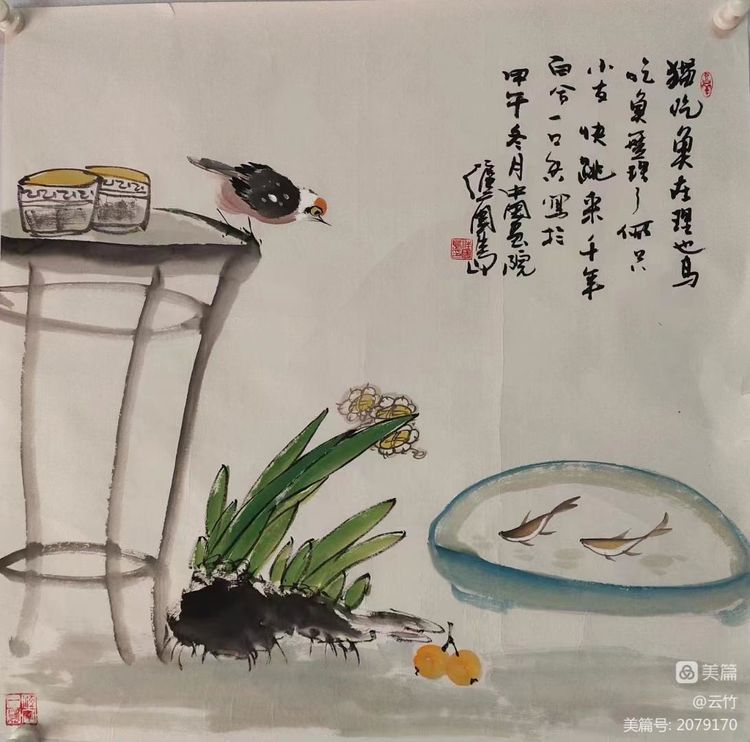 猫吃魚在理也鸟
吃魚理了俩只
小友快跳来千年
百合一口写於
甲午冬月中国画院
美篇
@云竹
美篇号: 2079170